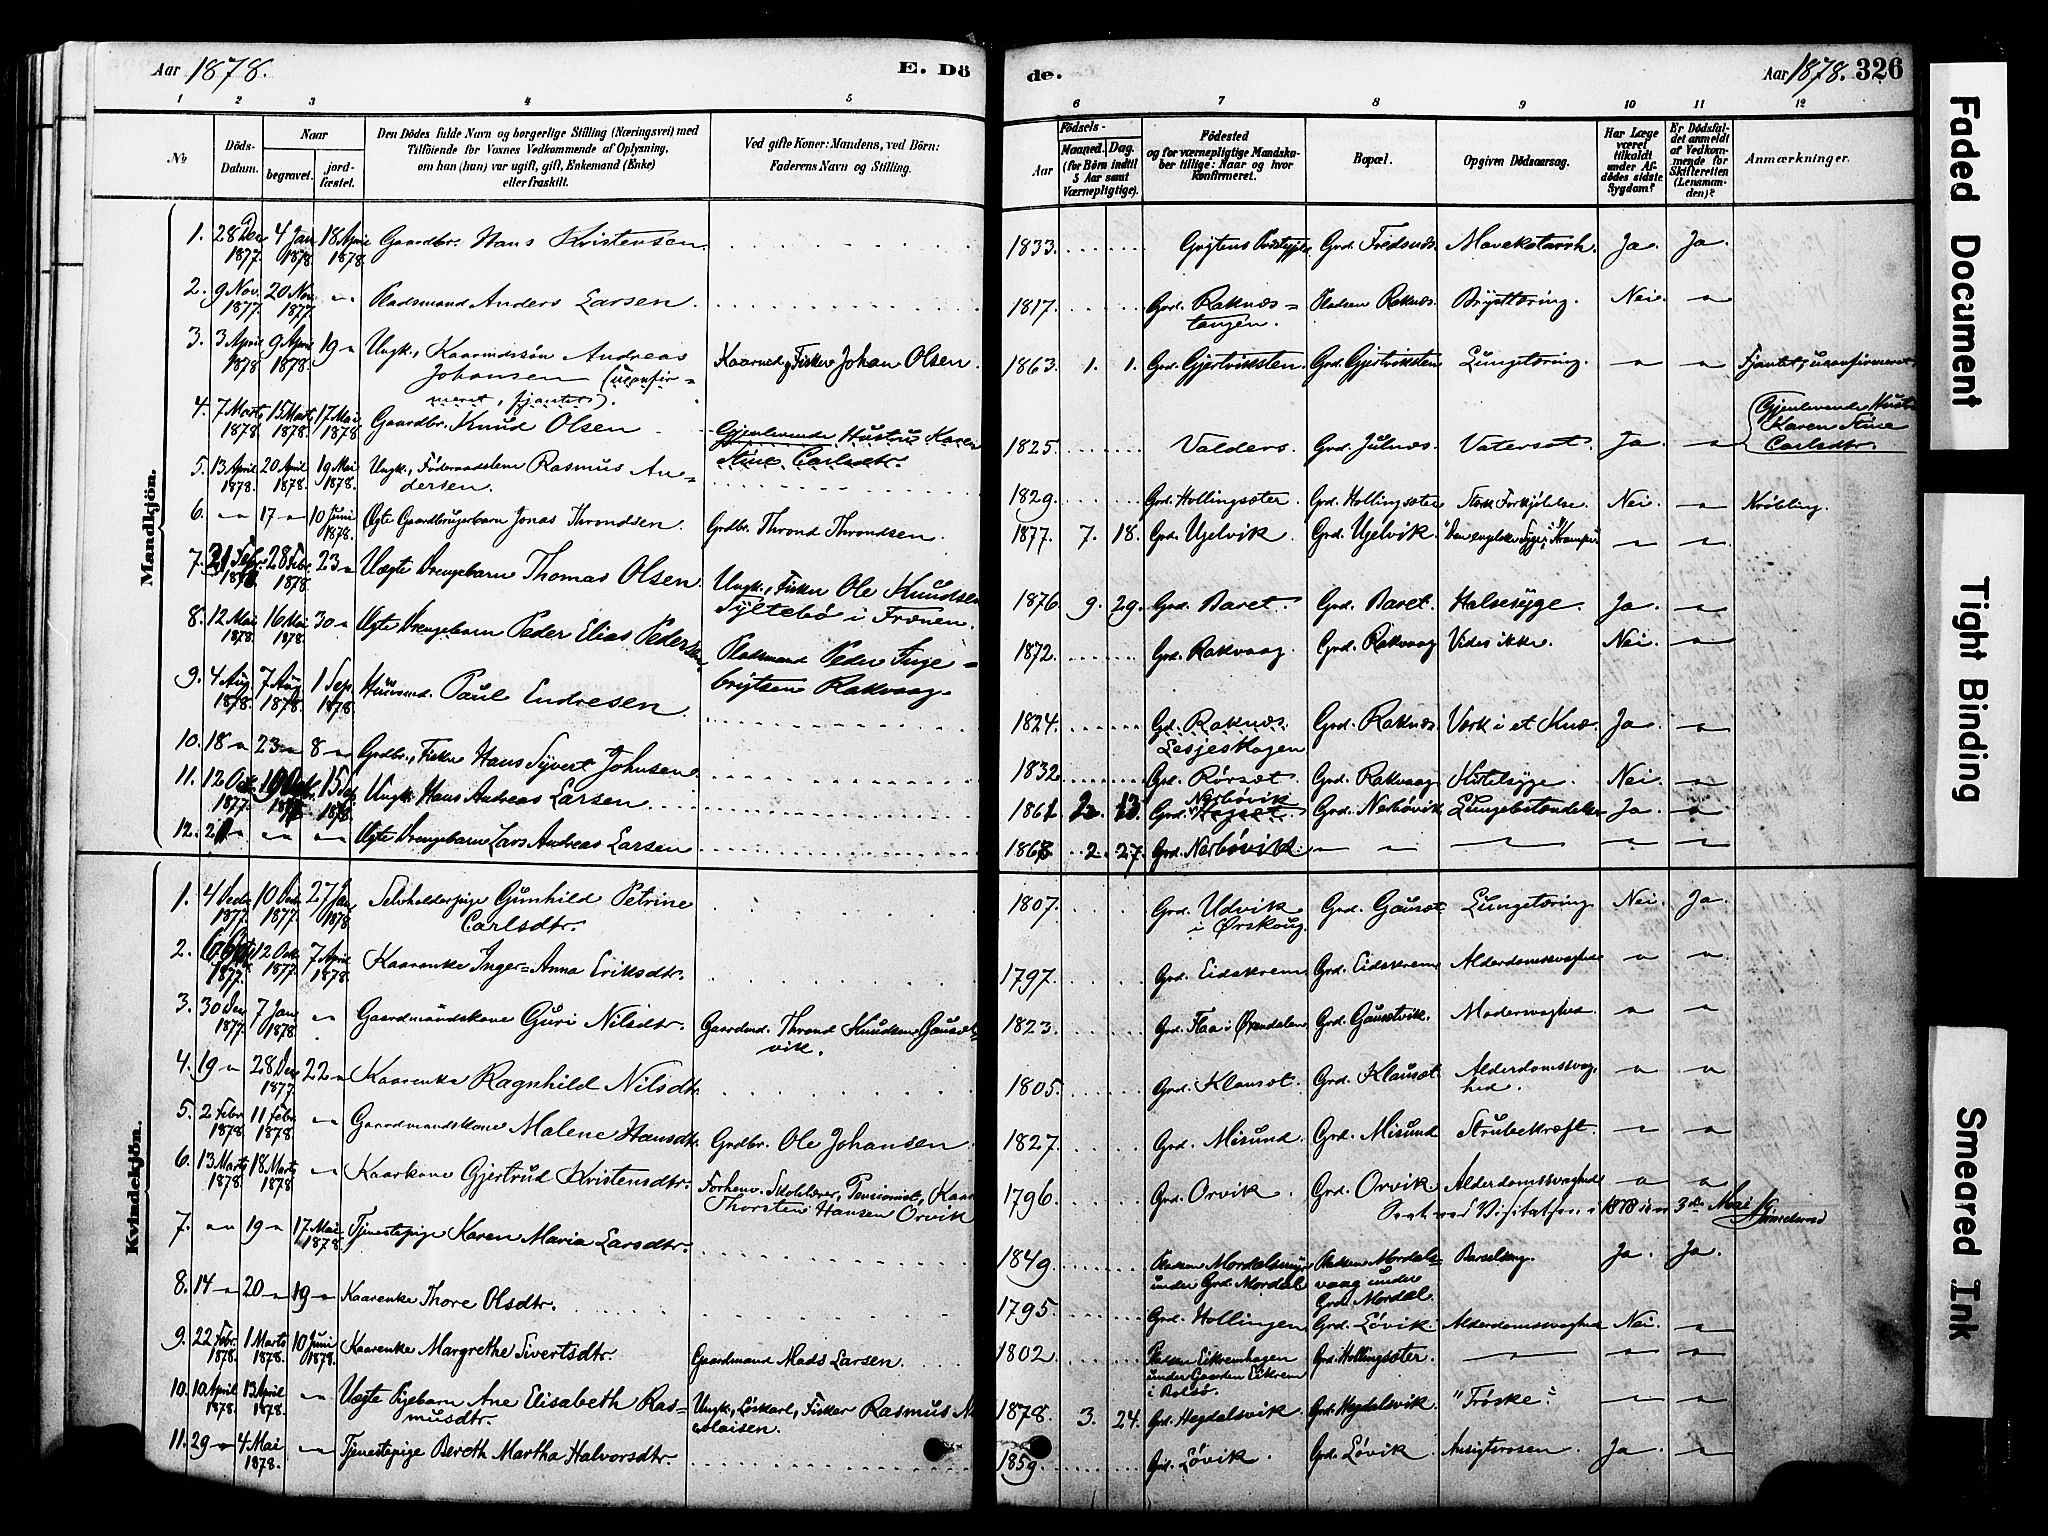 Aar 1878.
E. Dö
de.
Aar 1878. 326
1 2 3 4 5 6 7 8 9 10 11 12
No
Döds-Datum.
Naar
begravet.
jord-fæstet.
Den Dödes fulde Navn og borgerlige Stilling (Næringsvei) med
Tilföiende for Voxnes Vedkommende af Oplysning,
om han (hun) var ugift, gift, Enkemand (Enke)
eller fraskilt.
Ved gifte Koner: Mandens, ved Börn:
Faderens Navn og Stilling.
Födsels-
Aar
Maaned. Dag.
(for Börn indtil
5 Aar samt
Værnepligtige).
Födested
og for værnepligtige Mandska-
ber tillige: Naar og hvor
Konfirmeret.
Bopæl.
Opgiven Dödsaarsag.
Har Læge
været
tilkaldt
under Af-
dödes sidste
Sygdom?
Er Dödsfal-
det anmeldt
af Vedkom-
mende for
Skifteretten
(Lensman-
den)?
Anmærkninger.
Mandkjön.
1. 28 Dec 1877. 4 Jan 1878. 18 April 1878. Gaardbr. Hans Kristensen. 1833. Grd. Frednæs. Mavekatarrh. Ja. Ja.
2. 9 Nov. 1877. 20 Nov. 1877. " Pladsmand Anders Larsen. 1817. Grd. Raknæs=
tangen. Pladsen Raknæs. Brysttæring. Nei. "
3. 3 April 1878 9 April 1878. 19 " Ungk., Kaarmdssön Andreas
Johansen (uconfir=
meret, fjantet). Kaarmd., Fisker Johan Olsen. 1863. 1. 1. Grd. Gjertviksten. Grd. Gjertviksten Lungetæring. " " Fjantet, uconfirmeret.
4. 7 Marts 1878. 15 Marts 1878. 17 Mai 1878 Gaardbr. Knud Olsen. Gjenlevende Hustru Karen
Stine Carlsdtr. 1825. Valders. Grd. Julnæs. Vatersot. Ja. " Gjenlevende Hustru
Karen Stine
Carlsdtr.
5. 13 April 1878. 20 April 1878. 19 Mai 1878. Ungk., Föderaadslem Rasmus An=
dersen. 1829. Grd. Hollingsæter. Grd. Hollingsæter Stærk Forkjølelse. Nei. " Krøbling.
6. " 17 " 10 Juni 1878. Ægte Gaardbrugerbarn Jonas Throndsen. Grdbr. Thrond Throndsen. 1877. 7. 18. Grd. Ugelvik. Grd. Ugelvik. "Den engelske Syge", Krampe. " "
7. 21 Febr. 1878 28 Febr. 1878. 23 " Uægte Drengebarn Thomas Olsen. Ungk., Fisker Ole Knudsen
Syltebø i Frænen. 1876 9. 29. Grd. Baret. Grd. Baret. Halsesyge. Ja. "
8. 12 Mai 1878. 16 Mai 1878. 30 " Ægte Drengebarn Peder Elias Pedersen. Pladsmand Peder Inge=
brigtsen Rakvaag. 1872. Grd. Rakvaag. Grd. Rakvaag Vides ikke. Nei. "
9. 4 Aug 1878. 7 Aug 1878. 1 Sep. 1878. Huusmd. Paul Endresen. 1824. Gd. Raknæs.
Lesjeskogen Grd. Raknæs. Værk i et Knæ. Ja. "
10. 18 " 23 " 8 " Grdbr., Fisker Hans Syvert Johnsen. 1832. Grd. Rörsæt. Grd. Rakvaag. Nei. "
11. 12 Octr. 1877. 15 1878. Ungk. Hans Andreas Larsen. 1861 2. 13. Grd. Nerbövik Grd. Nerbövik Lungebetændelse. Ja. "
12. " " " Ægte Drengebarn Lars Andreas Larsen 1868 2. 27. Grd. Nerbövik. " " " " "
Kvindekjön.
1. 4 Decb. 1877. 10 Dec. 1877. 27 Jan 1878. Selvholderpige Gunhild Petrine
Carlsdtr. 1807. Grd. Udvik
i Ørskoug. Grd. Gausæt Lungetæring. Nei. Ja.
2. 1877. 12 Oct. 1877. 7 April 1878. Kaarenke Inger=Anna Eriksdtr. 1797. Grd. Eidskrem. Grd. Eidskrem. Alderdomssvaghed " "
3. 30 Dec 1877. 7 Jan 1878. " Gaardmandskone Guri Nilsdtr. Gaardmd. Thrond Knudsen Gausæt=
vik. 1823. Grd. Flaa i Grd. Gausætvik. Moderswaghed. " "
4. 19 " 28 Dec 1877. 22 " Kaarenke Ragnhild Nilsdtr. 1805. Grd. Klausæt. Grd. Klausæt Alderdomssvag=
hed. " "
5. 2 Febr. 1878. 11 Febr. 1878. " Gaardmandskone Malene Hansdtr. Grdbr. Ole Johansen. 1827. Grd. Misund. Grd. Misund Strubekræft. " "
6. 13 Marts 1878. 18 Marts 1878. " Kaarkone Gjertrud Kristensdtr. Forhenv. Skolelærer, Pensionist, Kaarm
Thorsten Hansen Orvik 1796. Grd. Orvik. Grd. Orvik Alderdomssvaghed " "
Seet ved Visitatsen i 1878 3die Mai
7. " 19 " 17 Mai 1878. Tjenestepige Karen Maria Larsdtr. 1849.
under Grd. Mordal Pladsen Mordals=
vaag under
Grd. Mordal. Barselseng. Ja. Ja.
8. 14 " 20 " 19 " Kaarenke Thore Olsdtr. 1795. Grd. Hollingen Grd. Lövik. Alderdomssvaghed Nei. "
9. 22 Febr. 1878. 1 Marts 1878. 10 Juni 1878. Kaarenke Margrethe Sivertsdtr. Gaardmand Mads Larsen. 1802. Pladsen Eikremhagen
under Gaarden Eikrem
i Bolsö. Grd. Hollingsæter. " " "
10. 10 April 1878. 13 April 1878. " Uægte Pigebarn Ane Elisabeth Ras=
musdtr. Ungk., Löskarl, Fisker Rasmus Ni
colaisen. 1878. 3. 24. Grd. Hegdalsvik. Grd. Hegdalsvik. "Tröske". " "
11. 29 " 4 Mai 1878. " Tjenestepige Bereth Martha Halvorsdtr. 1859. Grd. Lövik. Grd. Lövik. Ansigtsrosen. Ja. "
Faded Document
Tight Binding
Smeared Ink